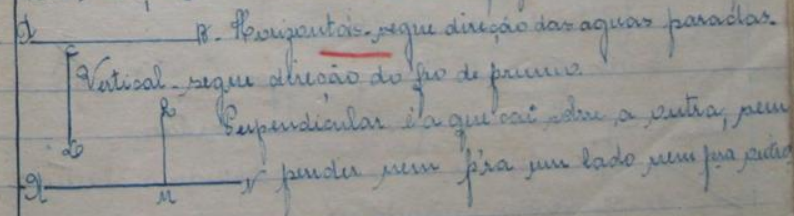 A B - Horizontais - segue direção das aguas paradas.
C
Vertical - segue direção do fio de prumo.
D L Perpendicular é a que cai sobre a outra, sem
pender nem p'ra um lado nem pra outro
M N